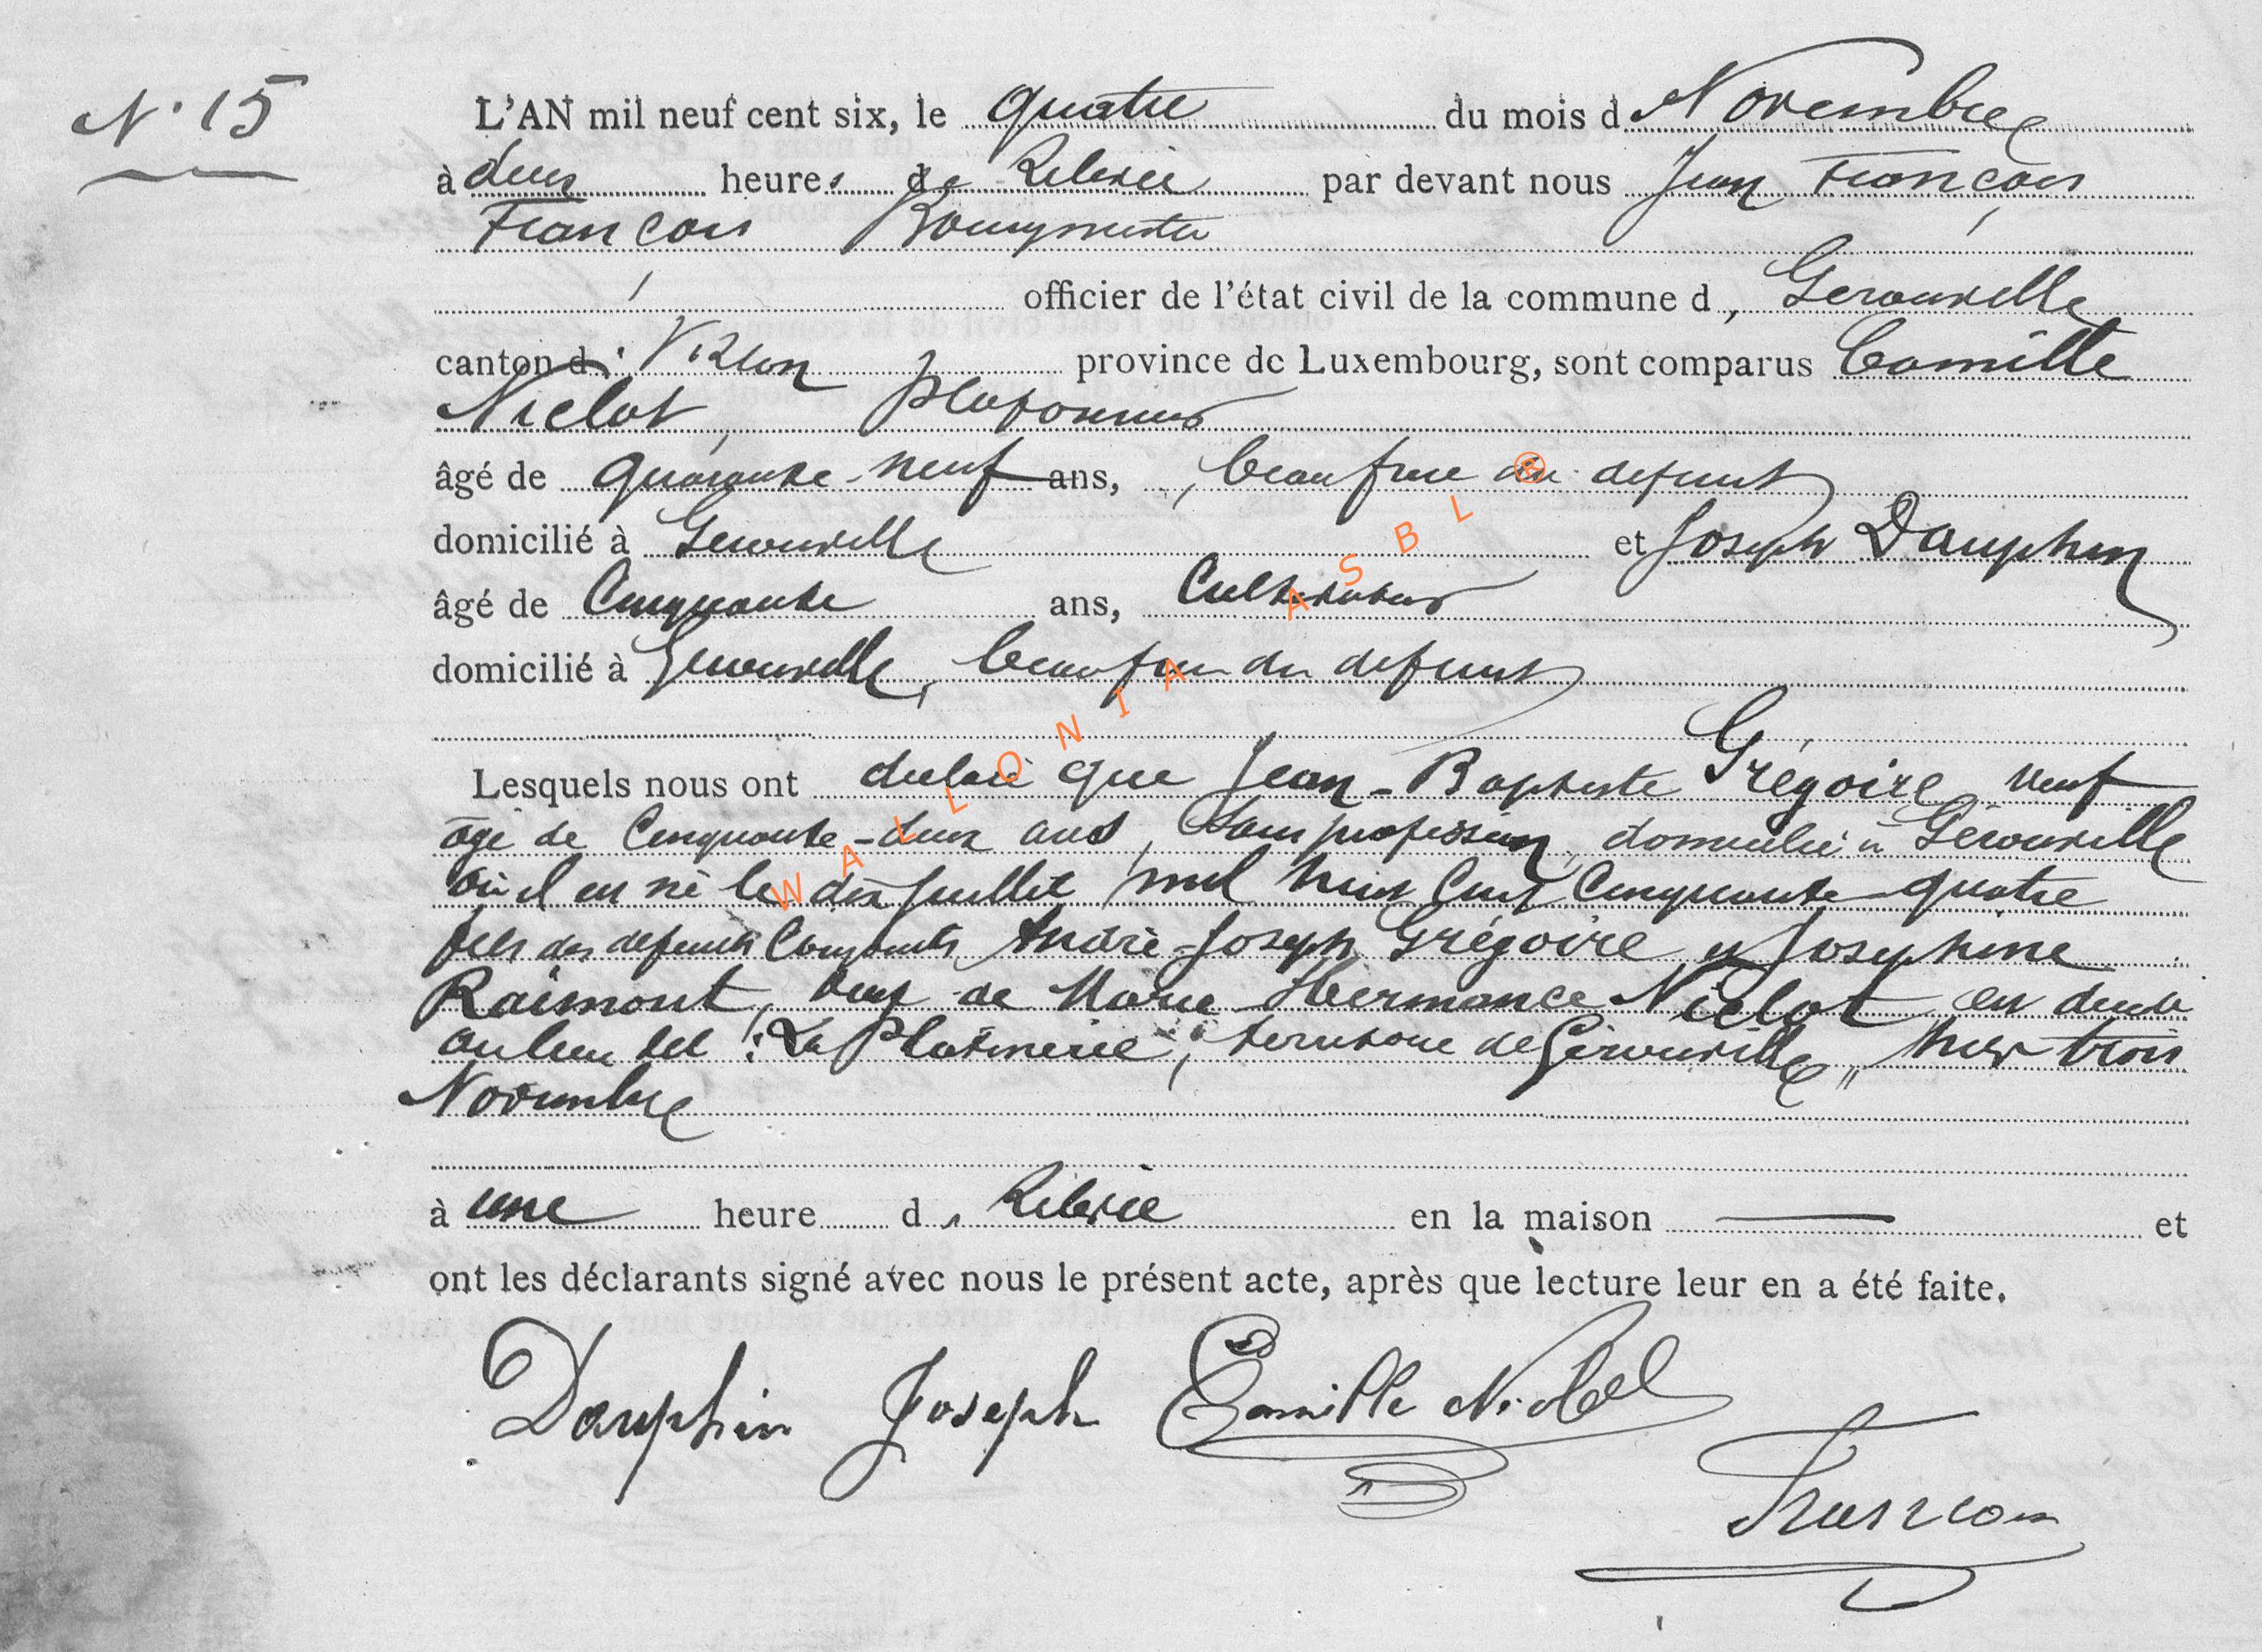 N° 15
L'AN mil neuf cent six, le quatre du mois d Novembre
à deux heures de Relevée par devant nous Jean François
François Bourgmestre
officier de l'état civil de la commune d, Gerouville
canton d. Virton province de Luxembourg, sont comparus Camille
Niclot, plafonneur
âgé de quarante-neuf ans, beau frère du defunt
domicilié à Gerouville et Joseph Dauphin
âgé de Cinquante ans, Cultivateur
domicilié à Gerouville, beau frère du defunt
Lesquels nous ont déclaré que Jean-Baptiste Grégoire veuf
âgé de Cinquante-deux ans, Sans profession, domicilié à Gérouville
où il est né le dix Juillet mil huit Cent Cinquante quatre
fils des defunts Conjoints André-Joseph Grégoire et Josephine
Raimont, veuf de Marie Hermance Niclot est décédé
au lieu dit : La Platinerie, territoire de Gérouville, hier trois
Novembre
à une heure d, Relevée en la maison et
ont les déclarants signé avec nous le présent acte, après que lecture leur en a été faite.
Dauphin Joseph Camille Niclot
François
WALLONIA ASBL ®